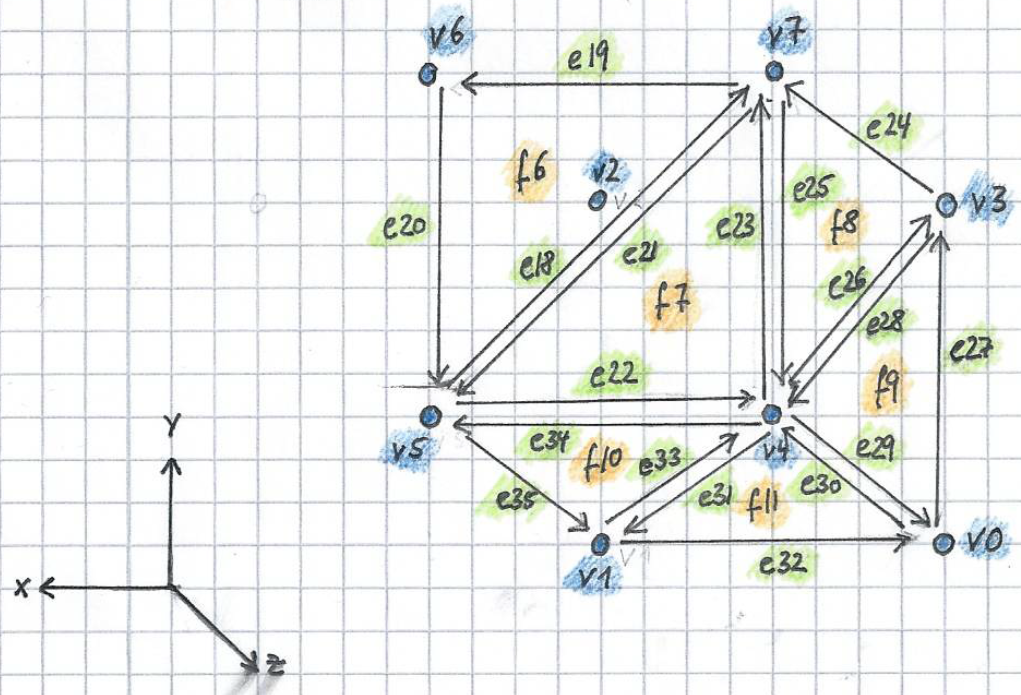 v6
v7
e19
e24
f6
v2
e25
v3
e20
e23
f8
e18
e21
e26
f7
e28
e27
e22
f9
Y
v5
e34
f10
e33
v4
e29
e35
e31
f11
e30
v1
e32
v0
X
Z